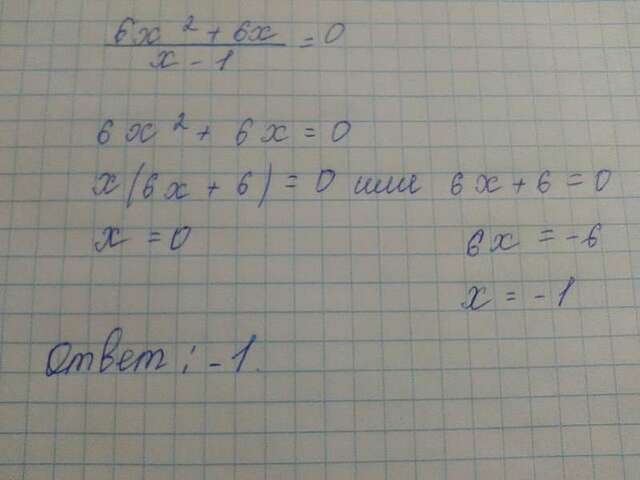 6x² + 6x / x - 1 = 0
6x² + 6x = 0
x(6x + 6) = 0 или 6x + 6 = 0
x = 0 6x = -6
x = -1
Ответ: -1.